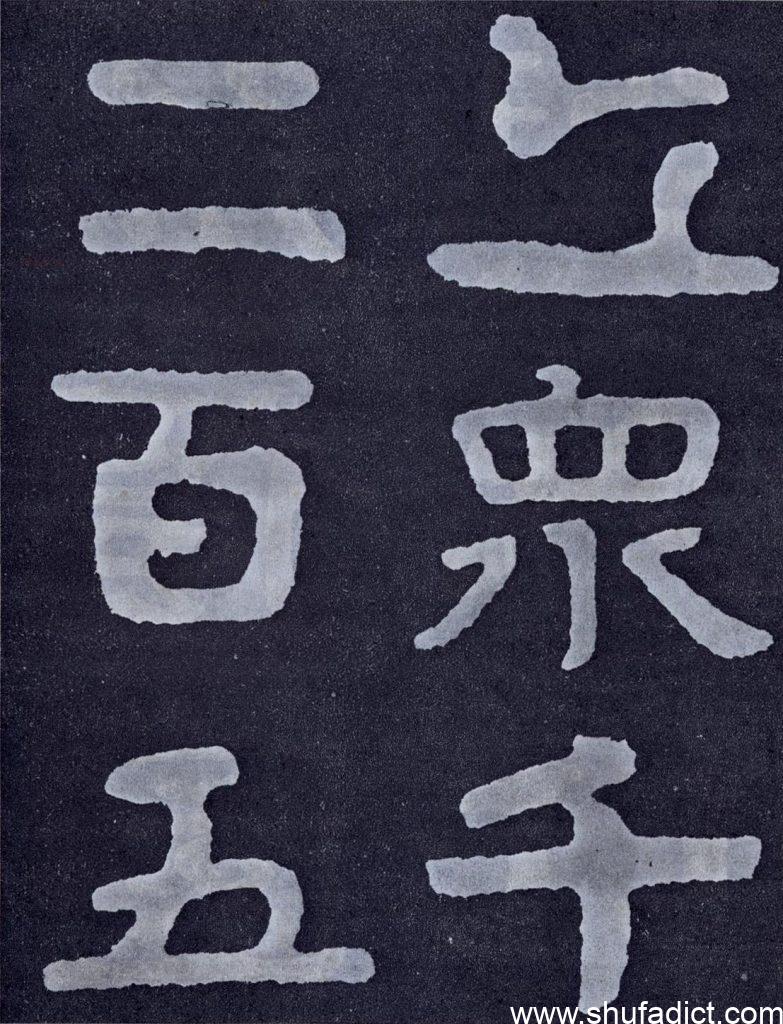 丘衆千
二百五
www.shufadict.com